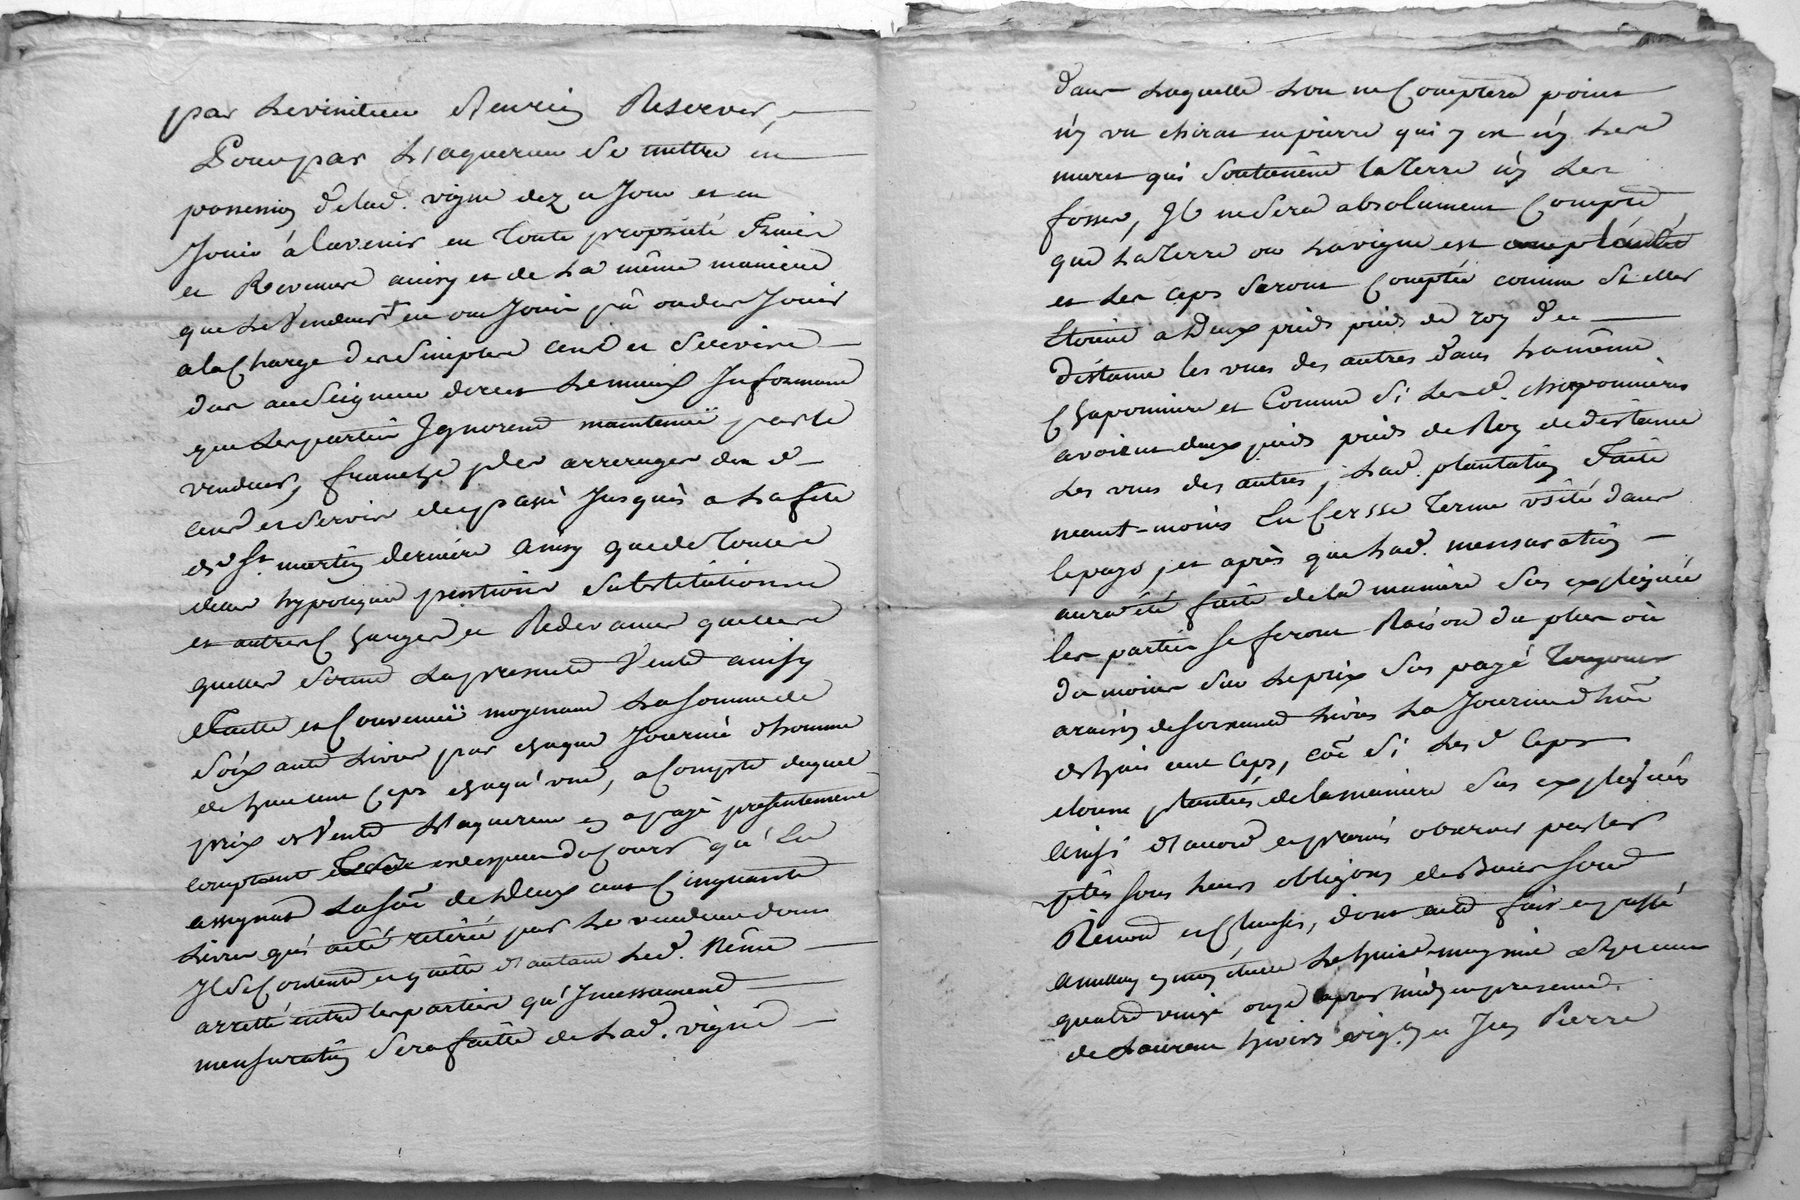 par Reserver,
Pour par l'aquereur de mettre en
possession de lad. vigne dez ce Jour et en
Jouir à l'avenir en toute proprieté fruits
et Revenus ainsy et de la même maniere
que le Vendeur en ou Jouir
a la Charge des simples cens et servis
dus au Seigneur direct Informané
que les parties Ignorent par le
vendeur, franche des arrerages des d
cens et servis du passé Jusques a la fete
de St martin derniere ainsy que de toutes
dettes hypoteques pentions substitutions
et autres Charges et Redevances quelles
quelles soient La presente Vente ainsy
faitte et Convenüe moyenant La somme de
soixante Livres par chaque Journée d'homme
de huit cent Ceps chaqu'une, a Compte duquel
prix de Vente L'aquereur en a payé presentement
comptant en especes du Cours qu'En
assignat La sôe de Deux cent Cinquante
Livres qui a été retirée par le vendeur dont
Il se Contente et quitte d'autant Led. même
arretté entre les parties qu'Incessament
mensuration sera faitte de Lad. vigne
dans Laquelle Lon ne Comptera point
n'y un chirat en pierre qui y est n'y Les
murs qui soutienent la Terre n'y Les
fossés, Il ne sera absolument Compté
que La Terre ou La vigne est complantée
et Les ceps seront Comptés comme si elles
étoient a Deux pieds pieds de roy de
distance les unes des autres dans la même
Chaponniere et Comme si Les d. chaponnieres
avoient deux pieds pieds de Roy de distance
Les unes des autres, Lad. plantation faite
neant-moins Terme usité dans
le pays, et après que Lad. mensuration
aura été faite de la maniere sus expliquée
les parties se feront Raison du plus où
du moins sur Le prix sus payé Toujours
a raison de soixante Livres La Journée d'hôe
de huit cent Ceps, côe si Les d Ceps
étoient plantés de la maniere sus expliquée
ainsi d'accord et promis observer par les
pties sous leurs obligons
Renond et Clauses, dont acte fait et passé
a étude Le huit may mil sept cent
quatre vingt onze après midy en presence
de Laurent vig.on et Jean Pierre